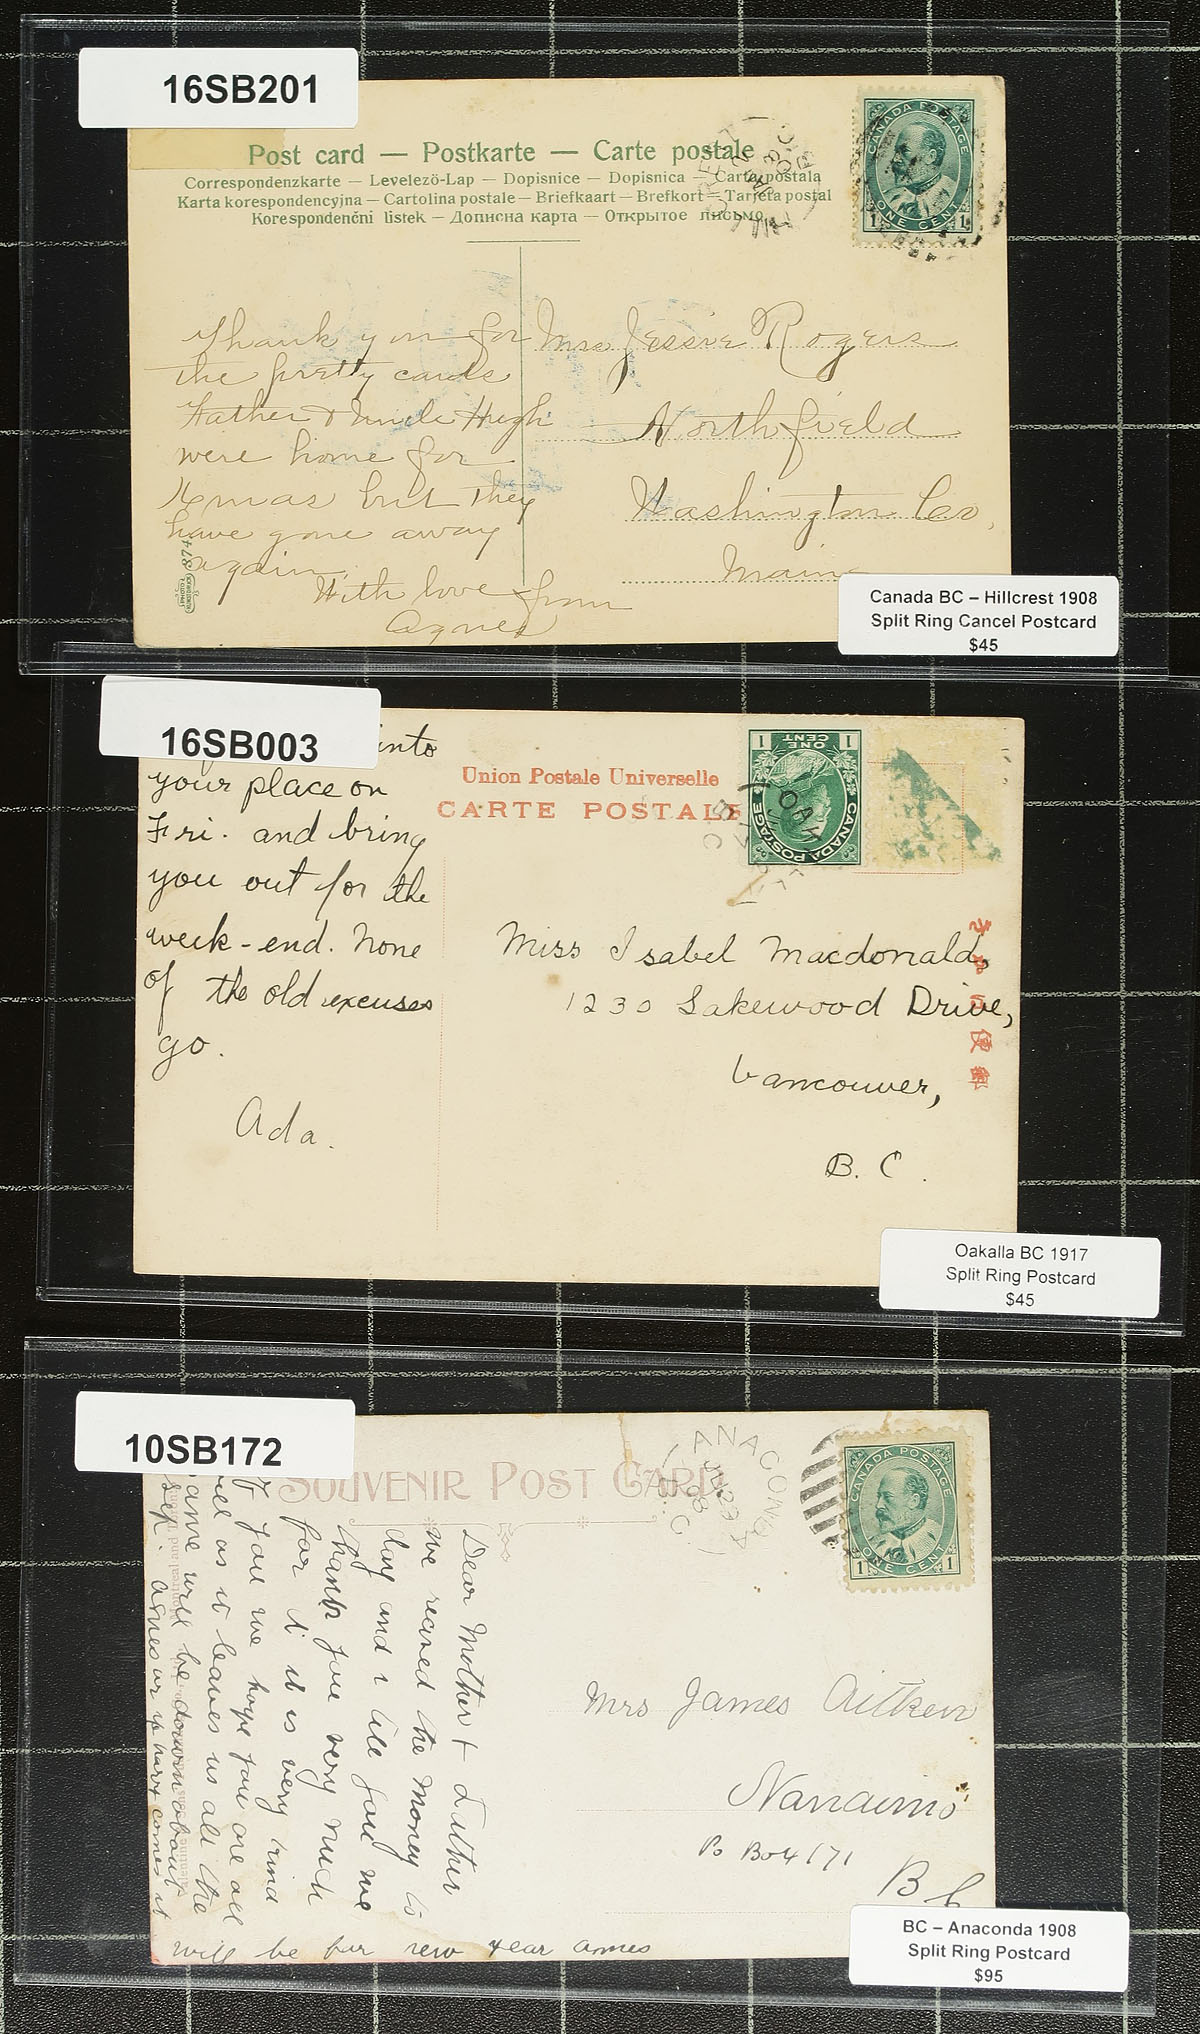 16SB201
Post card — Postkarte — Carte postale
Correspondenzkarte — Levelezö-Lap — Dopisnice — Dopisnica — Carte postala
Karta korespondencyjna — Cartolina postale — Briefkaart — Brefkort — Tarjeta postal
Korespondenční listek — Дописна карта — Открытое письмо
CANADA POSTAGE
1 ONE CENT 1
Thank you for
the pretty cards
Father & Uncle Hugh
were home for
Xmas but they
have gone away
again.
With love from
Agnes
Mrs Jessie Rogers
Northfield
Washington Co,
Maine
874
Canada BC – Hillcrest 1908
Split Ring Cancel Postcard
$45
16SB003
into
your place on
Fri. and bring
you out for the
week-end. None
of the old excuses
go.
Ada.
Union Postale Universelle
CARTE POSTALE
CANADA POSTAGE
1 ONE CENT 1
OAK
Miss Isabel Macdonald,
1230 Lakewood Drive,
Vancouver,
B. C.
Oakalla BC 1917
Split Ring Postcard
$45
10SB172
SOUVENIR POST CARD
ANACONDA
B.C
CANADA POSTAGE
1 ONE CENT 1
Dear Mother &
we received the money to
day and i tell you we
thank you very much
for it it is very kind
of you we hope you are all
well as it leaves us all the
same will be down about
Sep.
will be four new year
Mrs James Aitken
Nanaimo
Po Box 171
B C
BC – Anaconda 1908
Split Ring Postcard
$95